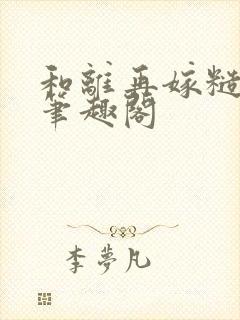 和離再嫁糙
筆趣閣
李夢凡